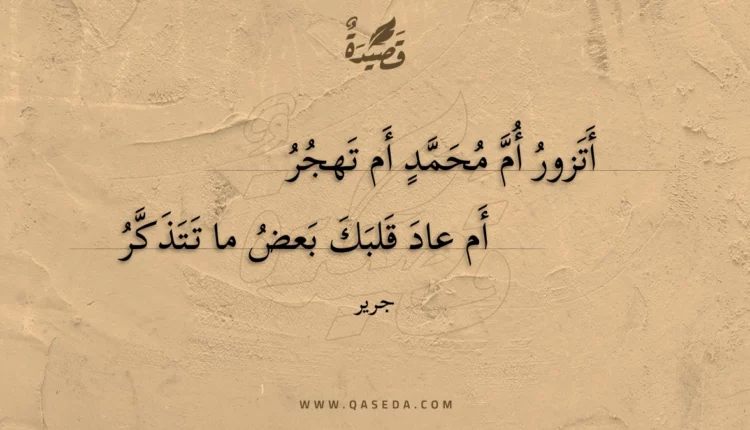 قَصِيدَةٌ
أَتَزورُ أُمَّ مُحَمَّدٍ أَم تَهجُرُ
أَم عادَ قَلبَكَ بَعضُ ما تَتَذَكَّرُ
جرير
WWW.QASEDA.COM